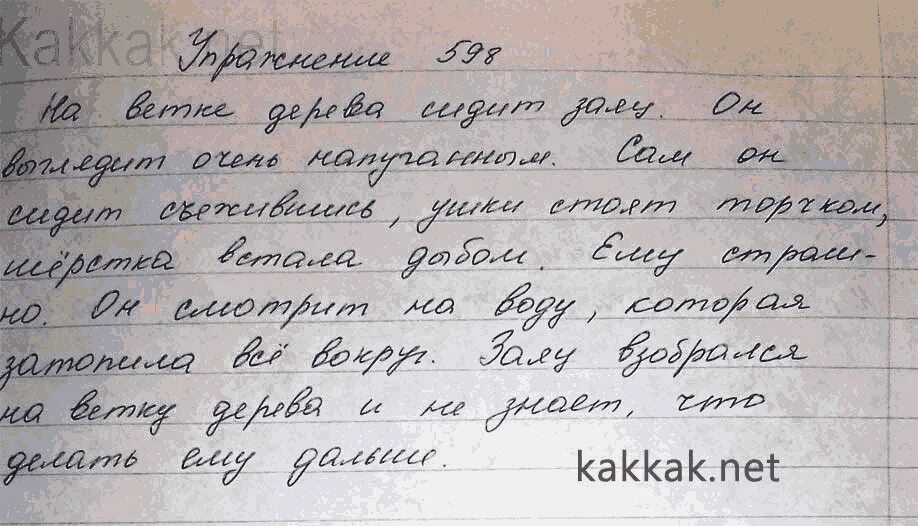 Kakkak.net
Упражнение 598
На ветке дерева сидит заяц. Он
выглядит очень напуганным. Сам он
сидит съежившись, ушки стоят торчком,
шёрстка встала дыбом. Ему страш-
но. Он смотрит на воду, которая
затопила всё вокруг. Заяц взобрался
на ветку дерева и не знает, что
делать ему дальше.
kakkak.net